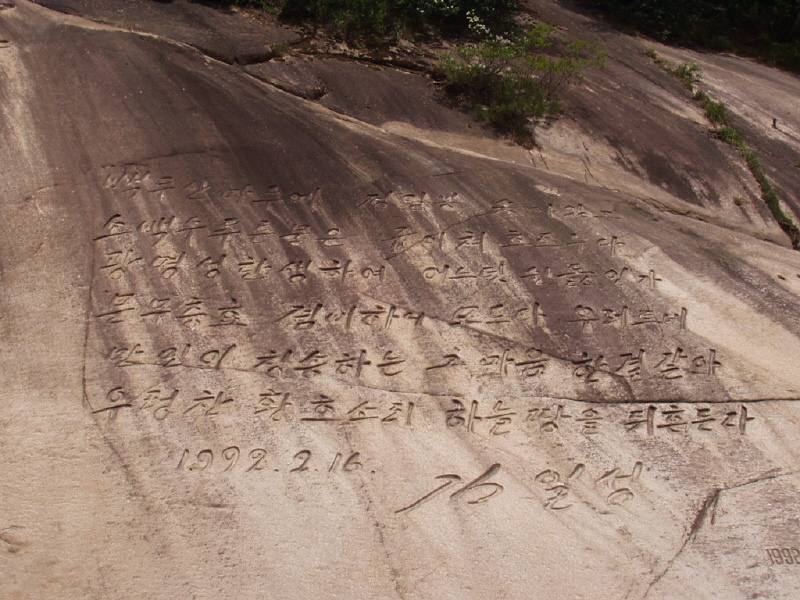 백두산마루에 정일봉 솟아있고
소백수푸른물은 굽이쳐 흐르누나
광명성탄생하여 어느덧 쉰돐인가
문무충효 겸비하니 모두다 우러르네
만민이 칭송하는 그 마음 한결같아
우렁찬 환호소리 하늘땅을 뒤흔든다
1992.2.16.
김일성
1992